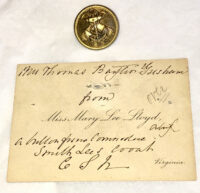 Hon Thomas Baxter Gresham
from
Miss Mary Lee Lloyd
a button from Commodore
Smith Lee's Coat
C S N
Virginia